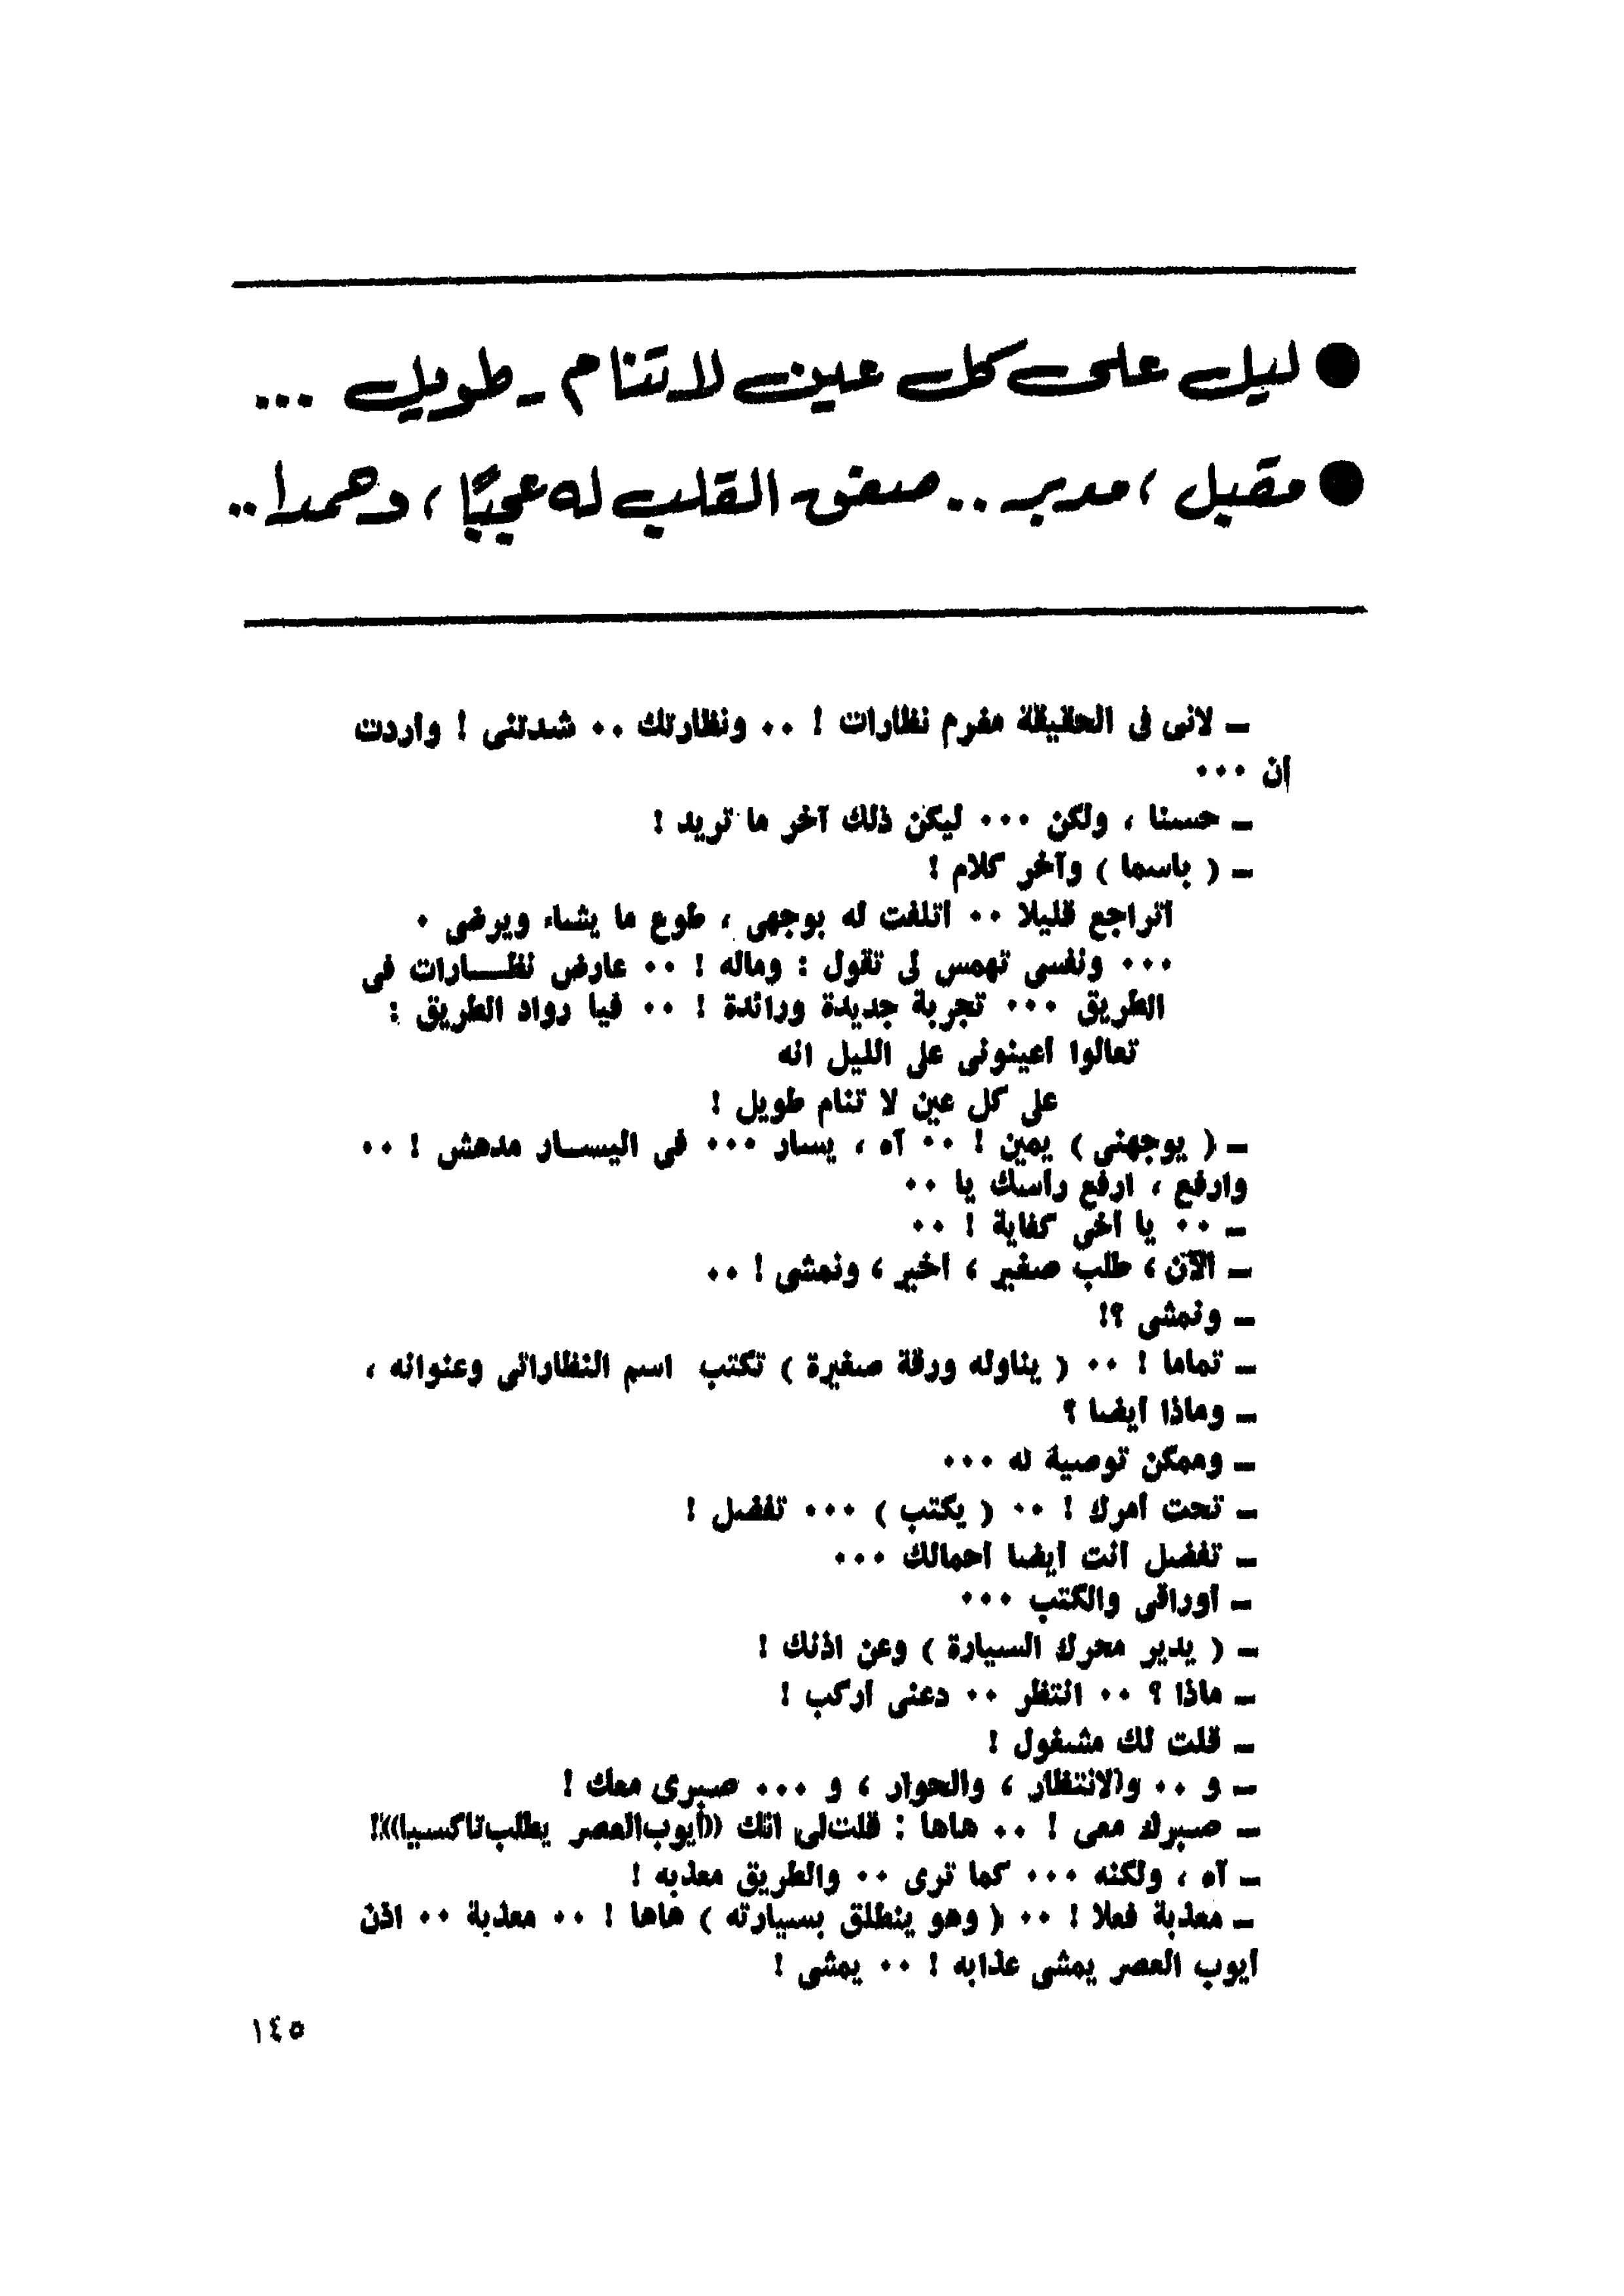 ● ليل على كل عين لا تنام - طويل ...
● مقبل ، مدبر .. صفق القلب له عجبًا ، وحمدا ..
ـ لانى فى الحقيقة مغرم نظارات ! ٠٠ ونظارتك ٠٠ شدتنى ! واردت
ان ٠٠٠
ـ حسنا ، ولكن ٠٠٠ ليكن ذلك آخر ما تريد !
ـ ( باسما ) وآخر كلام !
أتراجع قليلا ٠٠ أتلفت له بوجهى ، طوع ما يشاء ويرضى ٠
٠٠٠ ونفسى تهمس لى تقول : وماله ! ٠٠ عارض نظـــارات فى
الطريق ٠٠٠ تجربة جديدة ورائدة ! ٠٠ فيا رواد الطريق :
تعالوا أعينونى على الليل انه
على كل عين لا تنام طويل !
ـ ( يوجهنى ) يمين ! ٠٠ آه ، يسار ٠٠٠ فى اليســار مدهش ! ٠٠
وارفع ، ارفع رأسك يا ٠٠
ـ ٠٠ يا أخى كفاية ! ٠٠
ـ الآن ، طلب صغير ، أخير ، ونمشى ! ٠٠
ـ ونمشى ؟!
ـ تماما ! ٠٠ ( يناوله ورقة صغيرة ) تكتب اسم النظاراتى وعنوانه ،
ـ وماذا أيضا ؟
ـ وممكن توصية له ٠٠٠
ـ تحت أمرك ! ٠٠ ( يكتب ) ٠٠٠ تفضل !
ـ تفضل أنت أيضا أحمالك ٠٠٠
ـ أوراقى والكتب ٠٠٠
ـ ( يدير محرك السيارة ) وعن اذنك !
ـ ماذا ؟ ٠٠ انتظر ٠٠ دعنى أركب !
ـ قلت لك مشغول !
ـ و ٠٠ والانتظار ، والحوار ، و ٠٠٠ صبرى معك !
ـ صبرك معى ! ٠٠ هاها : قلت لى انك ((أيوب العصر يطلب تاكسيا))!
ـ آه ، ولكنه ٠٠٠ كما ترى ٠٠ والطريق معذبه !
ـ معذبة فعلا ! ٠٠ ( وهو ينطلق بسيارته ) هاها ! ٠٠ معذبة ٠٠ اذن
أيوب العصر يمشى عذابه ! ٠٠ يمشى !
١٤٥